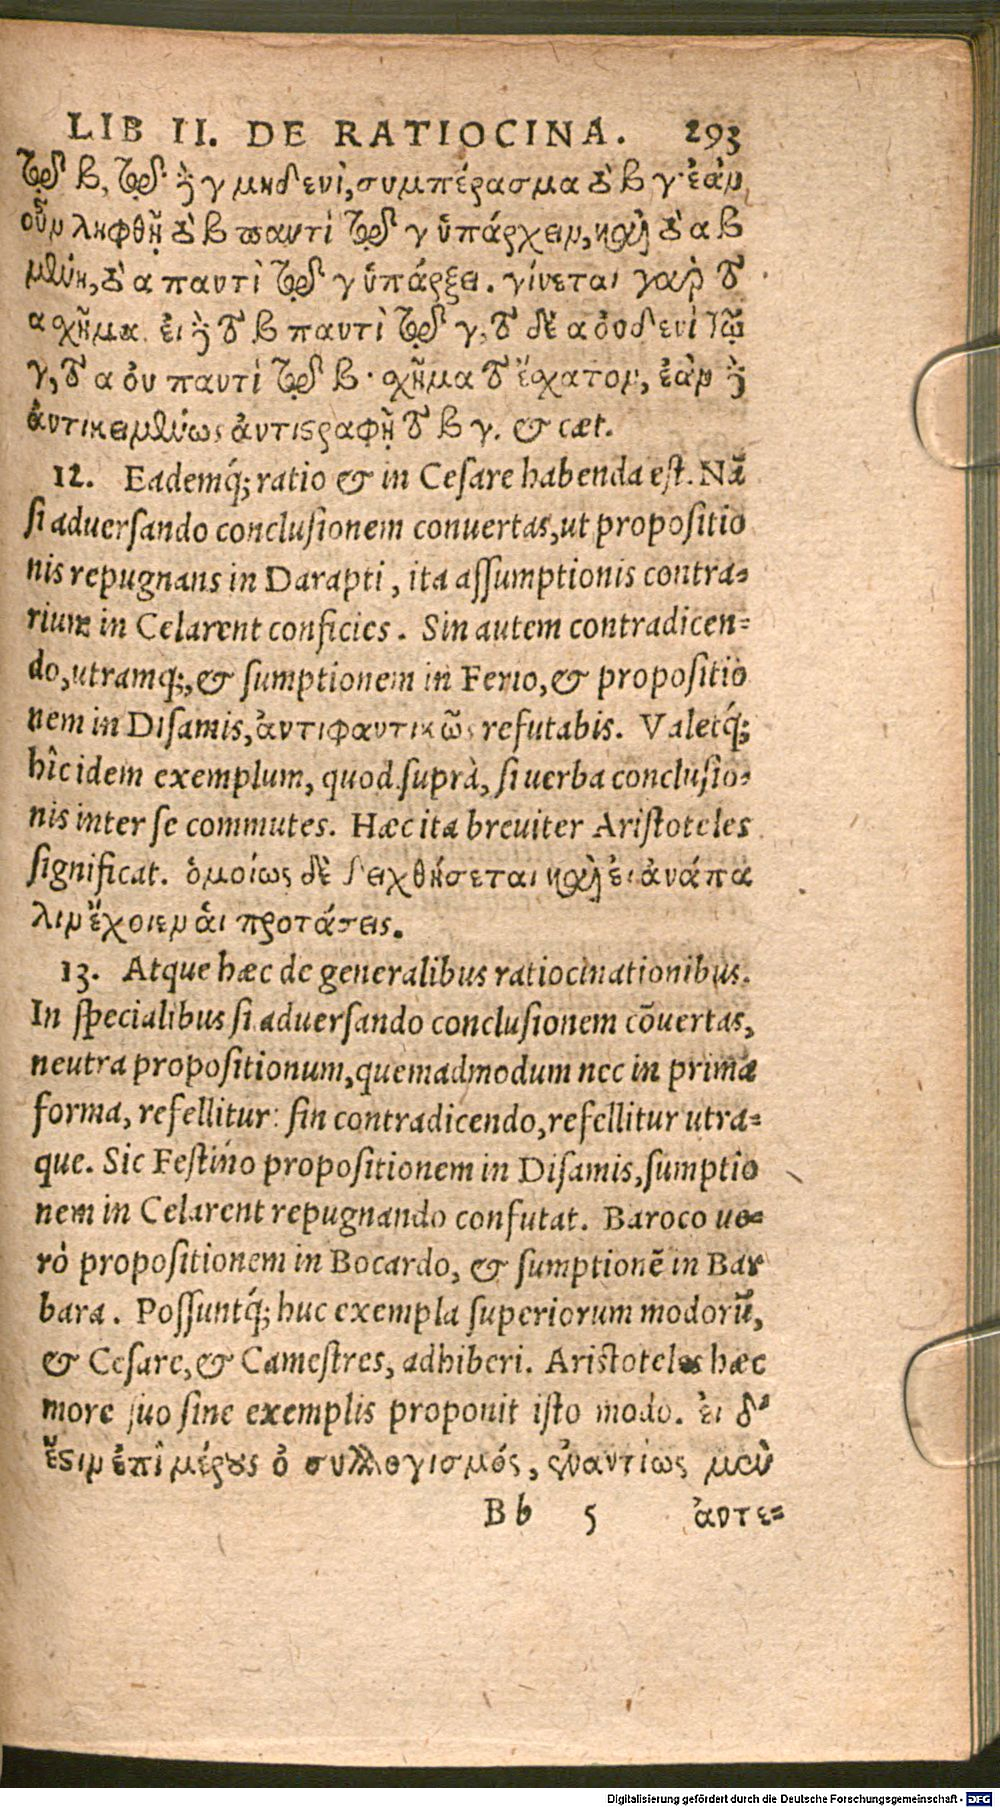 LIB II. DE RATIOCINA. 293
τῷ β, τῷ δὲ γ μηδενὶ, συμπέρασμα τὸ β γ· ἐὰν
οὖν ληφθῇ τὸ β παντὶ τῷ γ ὑπάρχειν, καὶ τὸ α β
μένῃ, τὸ α παντὶ τῷ γ ὑπάρξει. γίνεται γὰρ τὸ
α σχῆμα. εἰ δὲ τὸ β παντὶ τῷ γ, τὸ δὲ α οὐδενὶ τῷ
γ, τὸ α οὐ παντὶ τῷ β· σχῆμα τὸ ἔσχατον, ἐὰν δὲ
ἀντικειμένως ἀντιστραφῇ τὸ β γ. & cæt.
12. Eademq́; ratio & in Cesare habenda est. Nā
si aduersando conclusionem conuertas, ut propositio
nis repugnans in Darapti, ita assumptionis contra-
rium in Celarent conficies. Sin autem contradicen-
do, utramq;, & sumptionem in Ferio, & propositio
nem in Disamis, ἀντιφαντικῶς refutabis. Valetq́;
hîc idem exemplum, quod suprà, si uerba conclusio-
nis inter se commutes. Hæc ita breuiter Aristoteles
significat. ὁμοίως δὲ δειχθήσεται καὶ εἰ ἀνάπα
λιν ἔχοιεν ἁι προτάσεις.
13. Atque hæc de generalibus ratiocinationibus.
In specialibus si aduersando conclusionem cōuertas,
neutra propositionum, quemadmodum nec in prima
forma, refellitur: sin contradicendo, refellitur utra-
que. Sic Festino propositionem in Disamis, sumptio
nem in Celarent repugnando confutat. Baroco ue-
rò propositionem in Bocardo, & sumptionē in Bar
bara. Possuntq́; huc exempla superiorum modorū,
& Cesare, & Camestres, adhiberi. Aristoteles hæc
more suo sine exemplis proponit isto modo. ἐι δ'
ἔστιν ἐπὶ μέρους ὁ συλλογισμός, ἐναντίως μὲν
Bb 5 ἀντε-
Digitalisierung gefördert durch die Deutsche Forschungsgemeinschaft - DFG